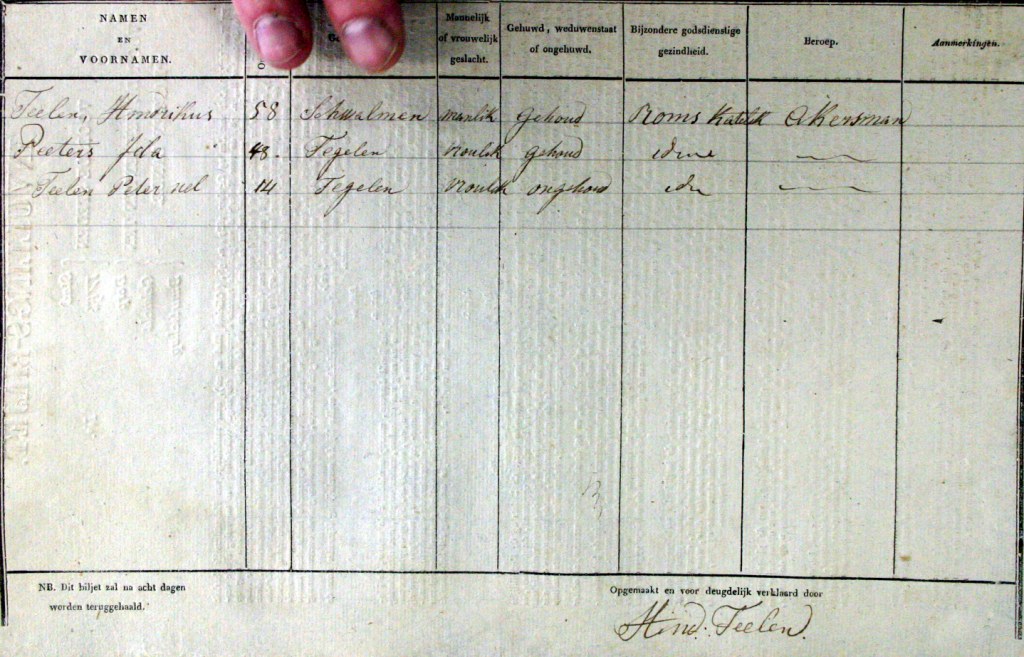 NAMEN EN VOORNAMEN. Mannelijk of vrouwelijk geslacht. Gehuwd, weduwenstaat of ongehuwd. Bijzondere godsdienstige gezindheid. Beroep. Aanmerkingen.
Teelen, Hendrikus 58 Schwalmen manlik gehoud Roms Katolk Akersman
Peeters Ida 48. Tegelen vroulik gehoud
Teelen Peternel 14 Tegelen vroulik ongehoud
NB. Dit biljet zal na acht dagen
worden teruggehaald.
Opgemaakt en voor deugdelijk verklaard door
Hind. Teelen.